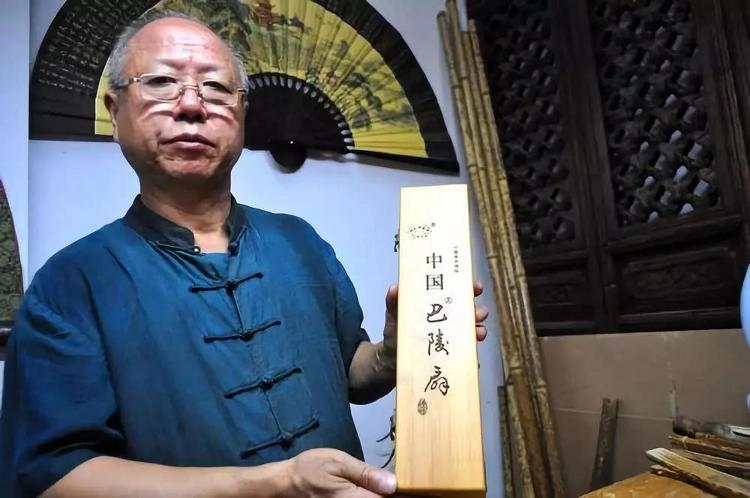 中国巴陵扇